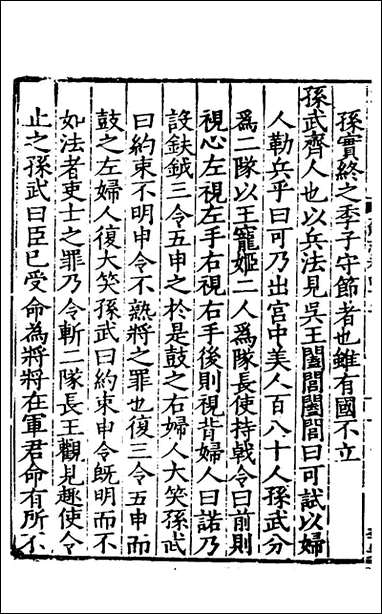 孫實終之季子守節者也雖有國不立
孫武齊人也以兵法見吳王闔閭闔閭曰可試以婦
人勒兵乎曰可乃出宮中美人百八十人孫武分
爲二隊以王寵姬二人爲隊長使持戟令曰前則
視心左視左手右視右手後則視背婦人曰諾乃
設鈇鉞三令五申之於是鼓之右婦人大笑孫武
曰約束不明申令不熟將之罪也復三令五申而
鼓之左婦人復大笑孫武曰約束申令旣明而不
如法者吏士之罪乃令斬二隊長王觀見趣使令
止之孫武曰臣已受命為將將在軍君命有所不